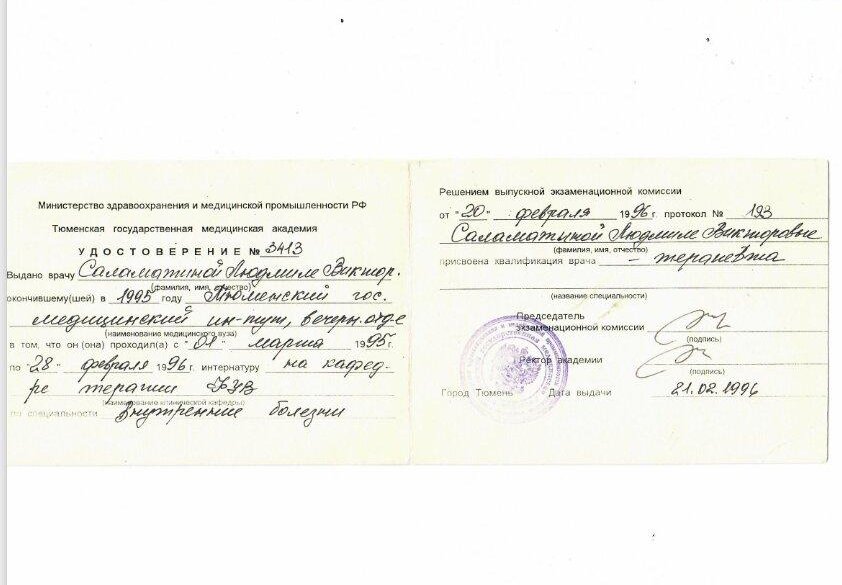 Министерство здравоохранения и медицинской промышленности РФ
Тюменская государственная медицинская академия
УДОСТОВЕРЕНИЕ № 3413
Выдано врачу Саламатиной Людмиле Виктор.
(фамилия, имя, отчество)
окончившему(шей) в 1995 году Тюменский гос.
медицинский ин-тут, вечерн. отд-е
(наименование медицинского вуза)
в том, что он (она) проходил(а) с "01" марта 1995 г.
по "28" февраля 1996 г. интернатуру на кафед-
ре терапии ФУВ
(наименование клинической кафедры)
по специальности Внутренние болезни
Решением выпускной экзаменационной комиссии
от "20" февраля 1996 г. протокол № 193
Саламатиной Людмиле Викторовне
(фамилия, имя, отчество)
присвоена квалификация врача – терапевта
(название специальности)
Председатель
экзаменационной комиссии
(подпись)
Ректор академии
(подпись)
Город Тюмень Дата выдачи 21.02.1996